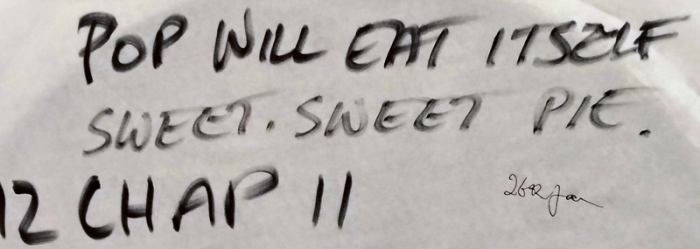 POP WILL EAT ITSELF
SWEET. SWEET PIE.
12 CHAP 11